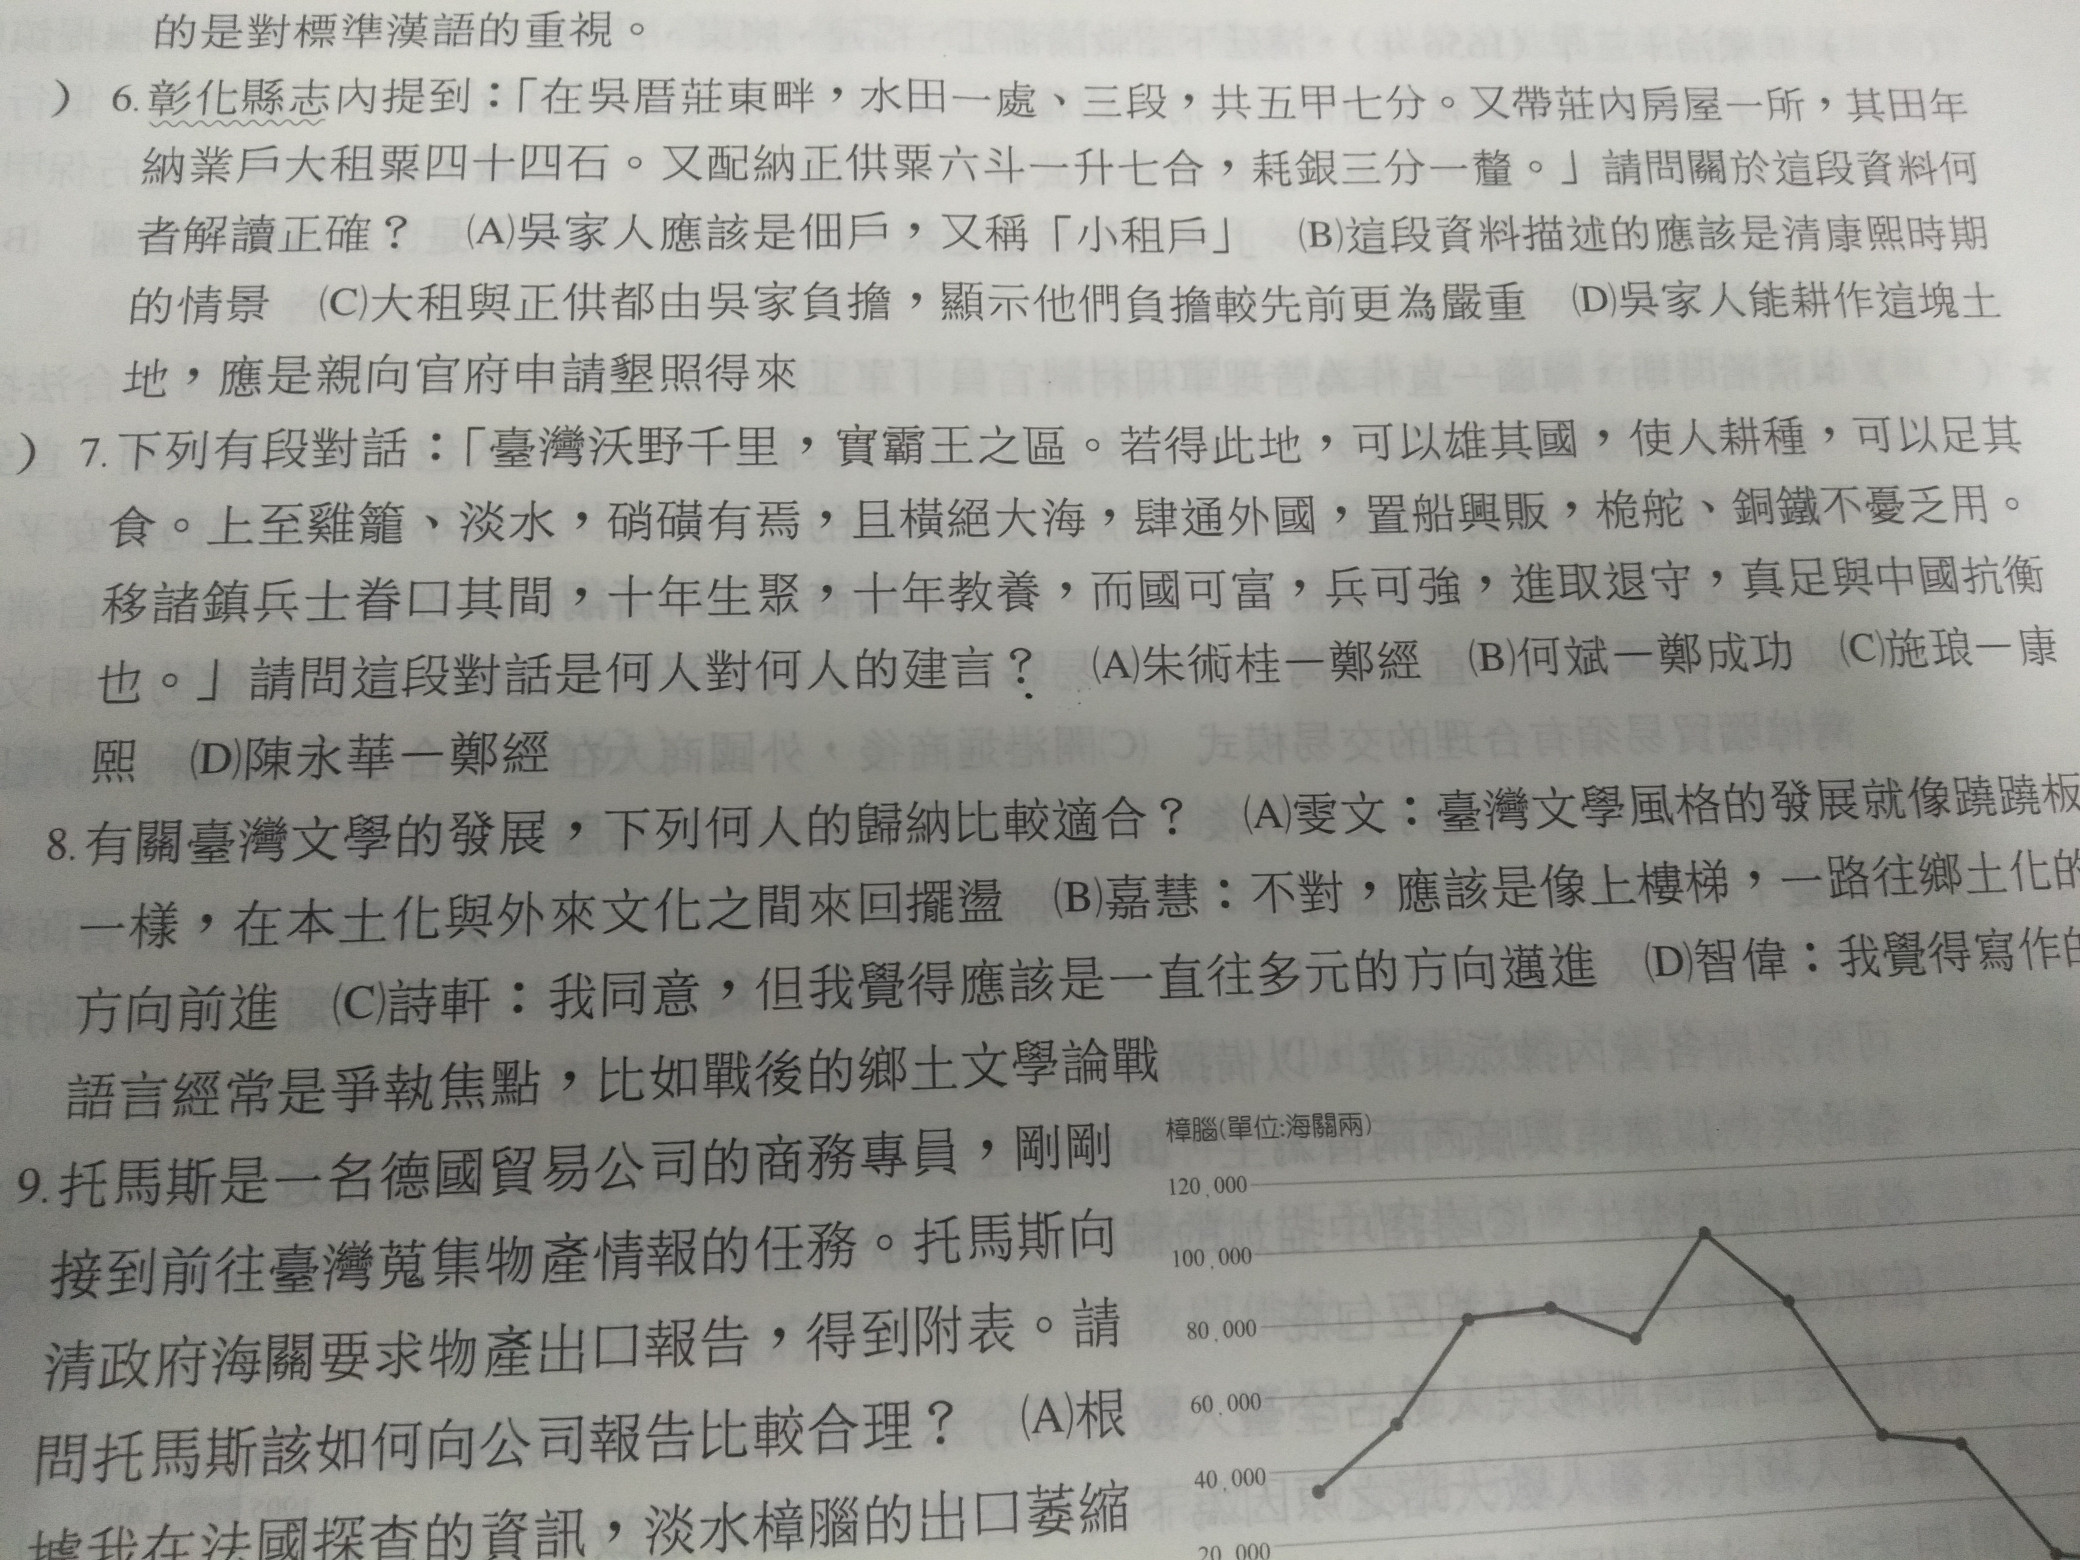 的是對標準漢語的重視。
) 6.彰化縣志內提到：「在吳厝莊東畔，水田一處、三段，共五甲七分。又帶莊內房屋一所，其田年
納業戶大租粟四十四石。又配納正供粟六斗一升七合，耗銀三分一釐。」請問關於這段資料何
者解讀正確？ (A)吳家人應該是佃戶，又稱「小租戶」 (B)這段資料描述的應該是清康熙時期
的情景 (C)大租與正供都由吳家負擔，顯示他們負擔較先前更為嚴重 (D)吳家人能耕作這塊土
地，應是親向官府申請墾照得來
) 7.下列有段對話：「臺灣沃野千里，實霸王之區。若得此地，可以雄其國，使人耕種，可以足其
食。上至雞籠、淡水，硝磺有焉，且橫絕大海，肆通外國，置船興販，桅舵、銅鐵不憂乏用。
移諸鎮兵士眷口其間，十年生聚，十年教養，而國可富，兵可強，進取退守，真足與中國抗衡
也。」請問這段對話是何人對何人的建言？ (A)朱術桂－鄭經 (B)何斌－鄭成功 (C)施琅－康
熙 (D)陳永華－鄭經
8.有關臺灣文學的發展，下列何人的歸納比較適合？ (A)雯文：臺灣文學風格的發展就像蹺蹺板
一樣，在本土化與外來文化之間來回擺盪 (B)嘉慧：不對，應該是像上樓梯，一路往鄉土化的
方向前進 (C)詩軒：我同意，但我覺得應該是一直往多元的方向邁進 (D)智偉：我覺得寫作的
語言經常是爭執焦點，比如戰後的鄉土文學論戰
9.托馬斯是一名德國貿易公司的商務專員，剛剛
接到前往臺灣蒐集物產情報的任務。托馬斯向
清政府海關要求物產出口報告，得到附表。請
問托馬斯該如何向公司報告比較合理？ (A)根
據我在法國探查的資訊，淡水樟腦的出口萎縮
樟腦(單位:海關兩)
120,000
100,000
80,000
60,000
40,000
20,000